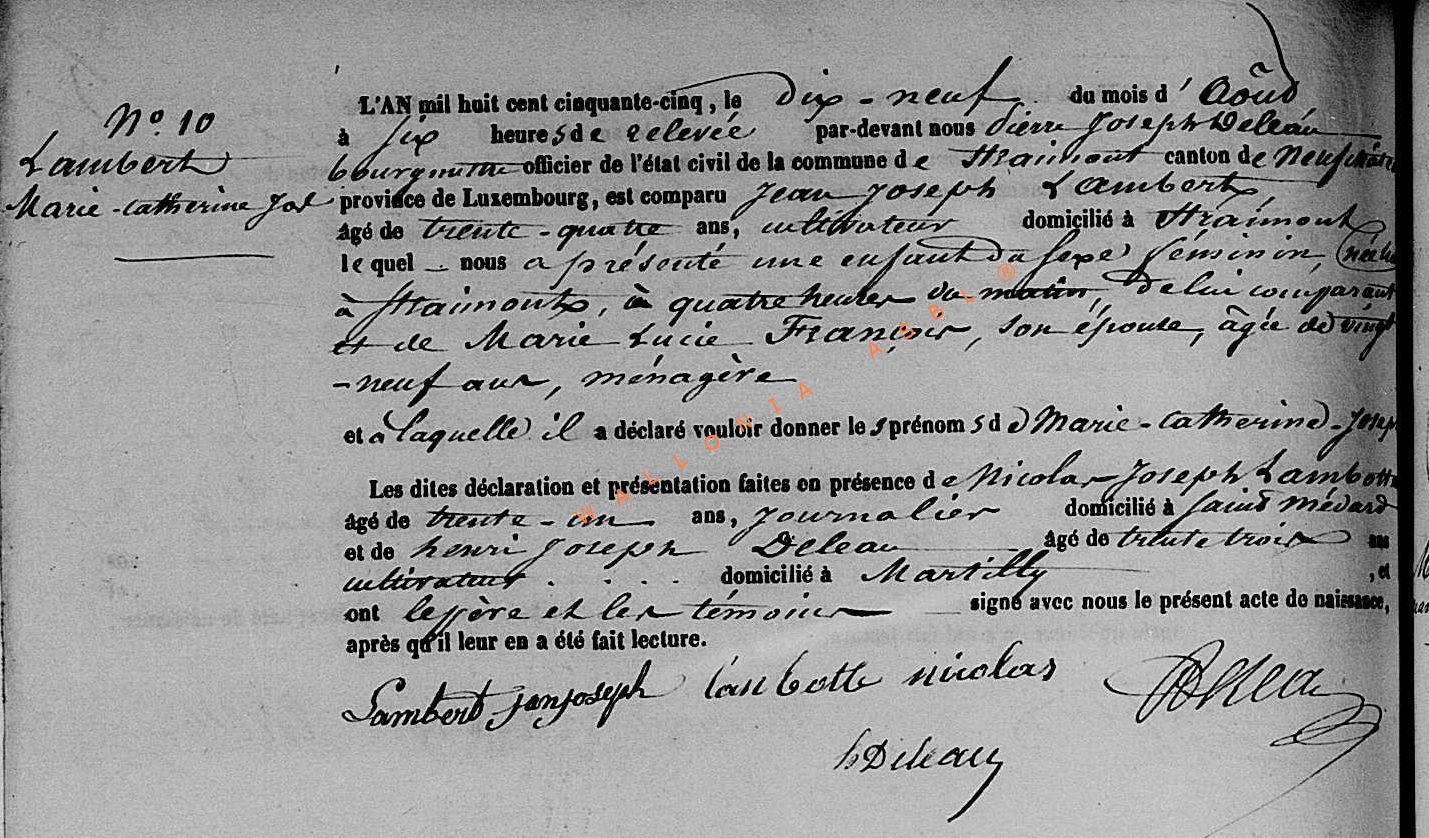 N° 10
Lambert
Marie-Catherine Jos
L'AN mil huit cent cinquante-cinq, le dix-neuf du mois d' Août
à six heures de relevée par-devant nous Pierre Joseph Deleau
bourgmestre officier de l'état civil de la commune de Straimont canton de Neufchâteau
province de Luxembourg, est comparu Jean Joseph Lambert,
âgé de trente-quatre ans, cultivateur domicilié à Straimont
lequel nous a présenté une enfant du sexe féminin, née
à Straimont, à quatre heures du matin, de lui comparant
et de Marie Lucie François, son épouse, âgée de vingt
-neuf ans, ménagère
et à laquelle il a déclaré vouloir donner les prénoms de Marie-Catherine-Joseph
Les dites déclaration et présentation faites en présence de Nicolas Joseph Lambotte
âgé de trente-un ans, journalier domicilié à Saint Médard
et de henri Joseph Deleau âgé de trente trois ans
cultivateur . . . . domicilié à Martilly , et
ont le père et les témoins signé avec nous le présent acte de naissance,
après qu'il leur en a été fait lecture.
Lambert jean joseph Lambotte nicolas
h Deleau
WALLONIA ASBL ®